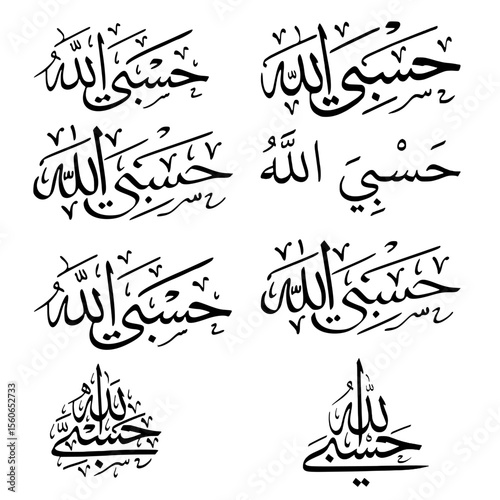 حسبي الله حسبي الله
حسبي الله حَسْبِيَ اللَّهُ
حسبي الله حسبي الله
حسبي الله حسبي الله
Adobe Stock | #1560652733